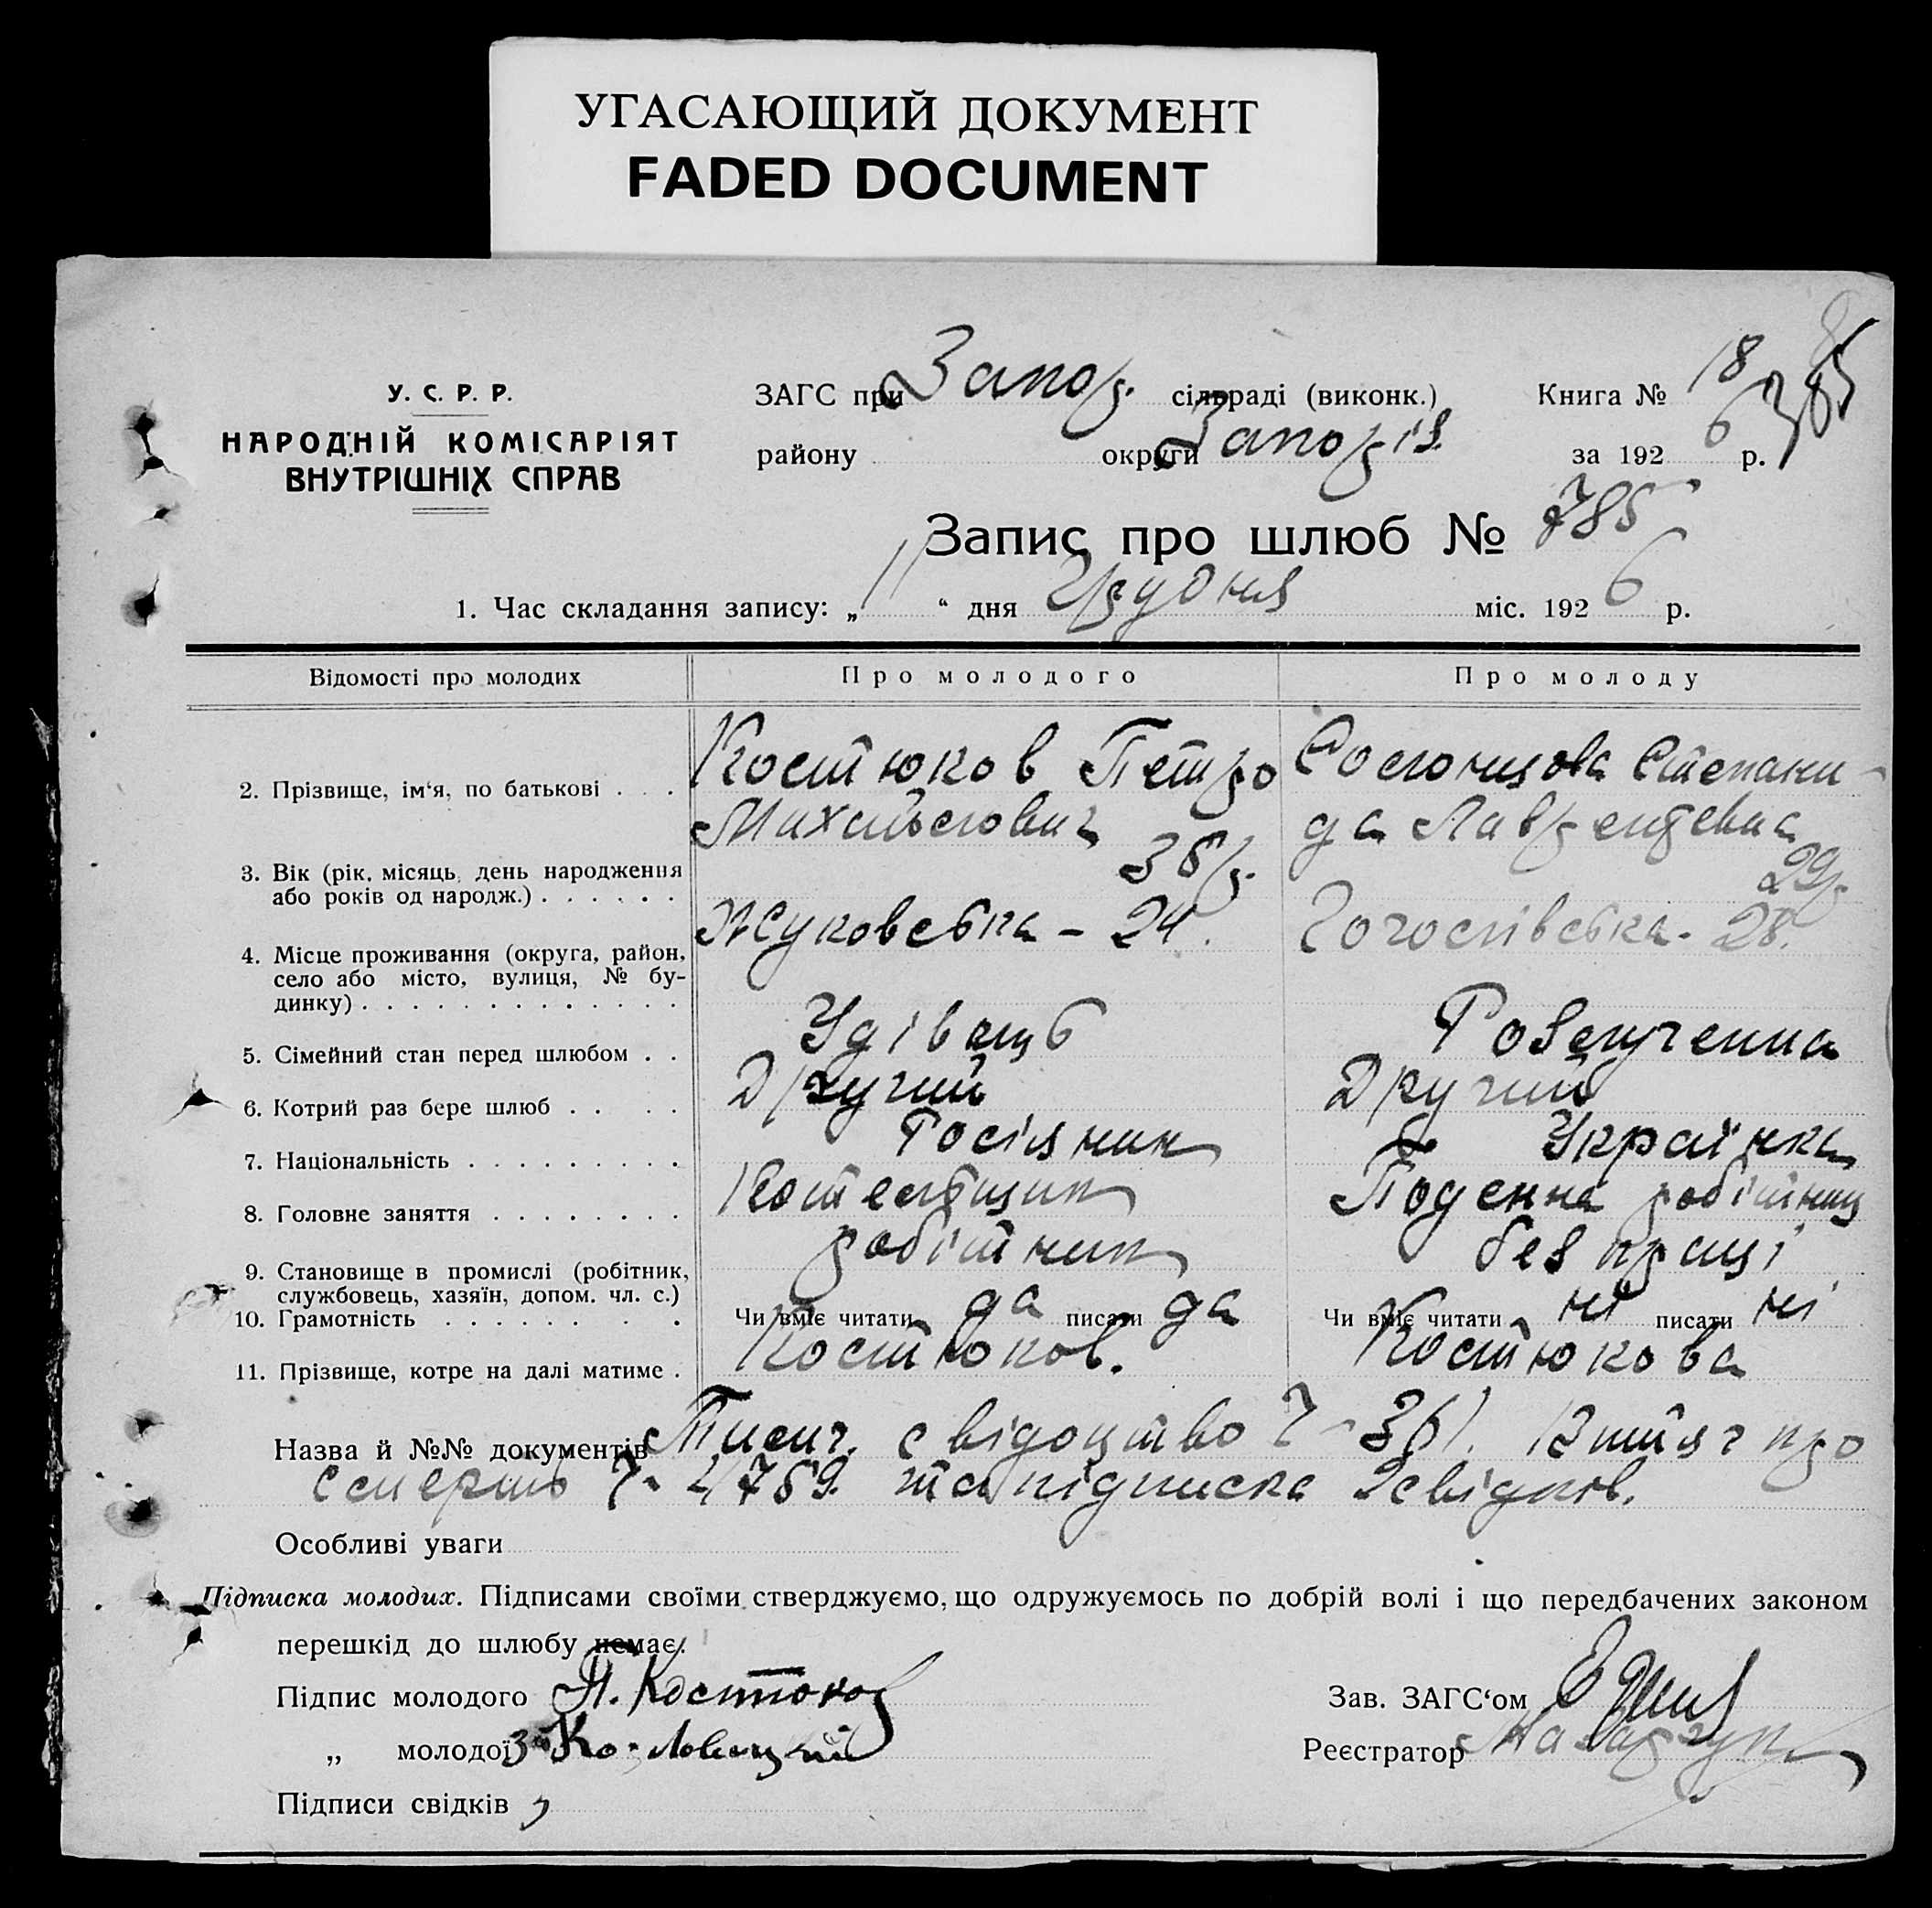 УГАСАЮЩИЙ ДОКУМЕНТ
FADED DOCUMENT
У. С. Р. Р.
НАРОДНІЙ КОМІСАРІЯТ
ВНУТРІШНІХ СПРАВ
ЗАГС при Запор. сільраді (виконк.)
району округи Запоріз.
Книга № 18
за 1926 р.
385
Запис про шлюб № 785
1. Час складання запису: „11“ дня Грудня міс. 1926 р.
Відомості про молодих Про молодого Про молоду
2. Прізвище, ім‘я, по батькові . . . Костюков Петро Степани-
Михайлович да Лаврентевна
3. Вік (рік, місяць, день народження 38р. 29р.
або років од народж.) . . . . . .
4. Місце проживання (округа, район, Жуковська - 24. 28.
село або місто, вулиця, № бу-
динку) . . . . . . . . . . . . .
5. Сімейний стан перед шлюбом . . Удівець Розлученна
6. Котрий раз бере шлюб . . . . Другий Другий
7. Національність . . . . . . . . . Росіянин Українка
8. Головне заняття . . . . . . . . Котельщик Поденна робітниц
9. Становище в промислі (робітник, робітник без праці
службовець, хазяїн, допом. чл. с.)
10. Грамотність . . . . . . . . Чи вміє читати да писати да Чи вміє читати ні писати ні
11. Прізвище, котре на далі матиме . Костюков. Костюкова
Назва й №№ документів свідоцтво 361. Витяг про
смерть 4789. та підписка 2 свідків.
Особливі уваги
Підписка молодих. Підписами своїми стверджуємо, що одружуємось по добрій волі і що передбачених законом
перешкід до шлюбу немає.
Підпис молодого П. Костюков Зав. ЗАГС‘ом
„ молодої за Реєстратор
Підписи свідків